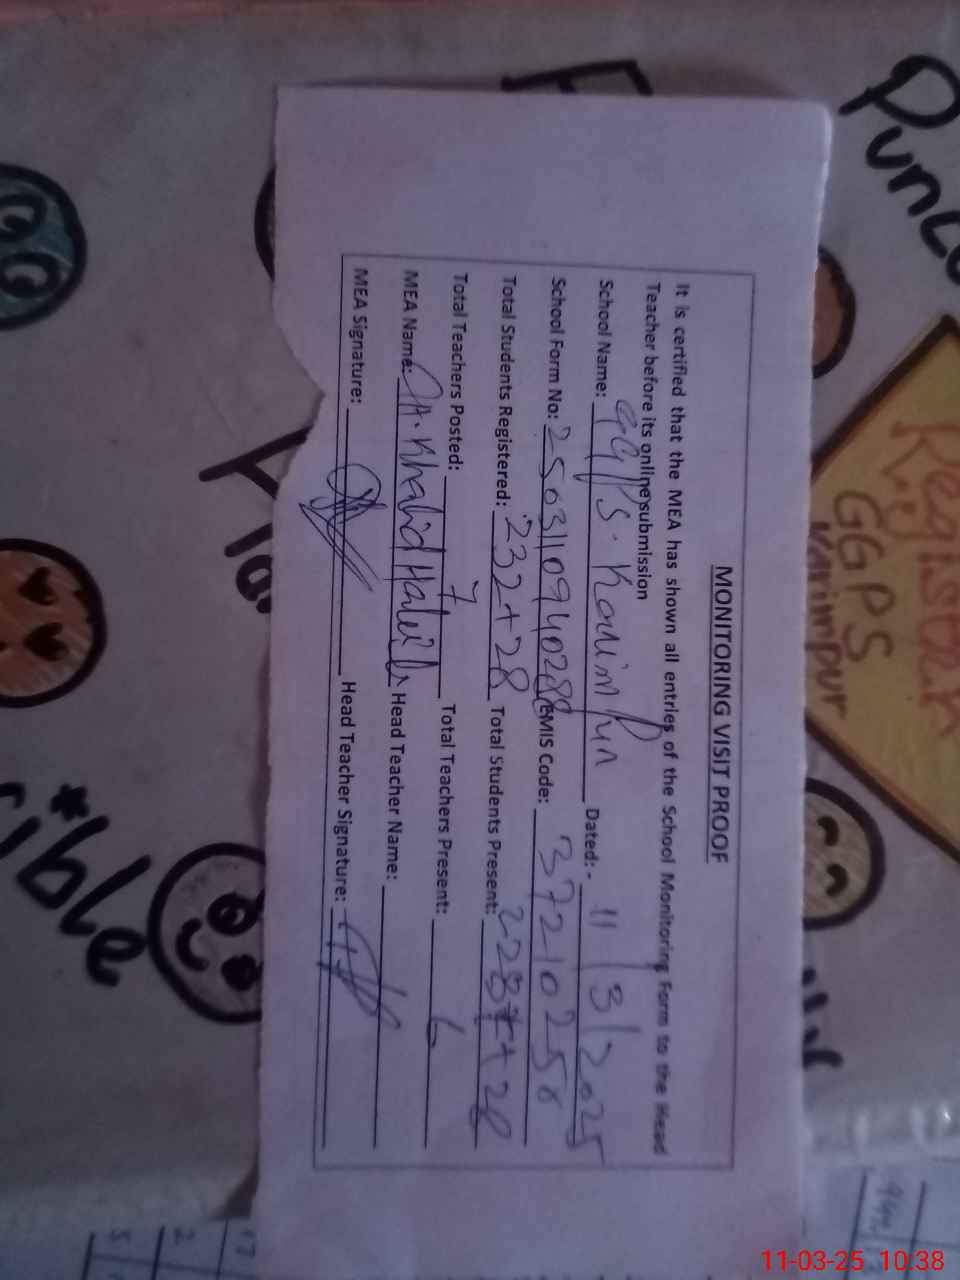 MONITORING VISIT PROOF
It is certified that the MEA has shown all entries of the School Monitoring Form to the Head
Teacher before its online submission
School Name: GGPS. Karim Pur Dated:- 11/3/2025
School Form No: 25031109402 EMIS Code: 37210258
Total Students Registered: 232+28 Total Students Present: 228++20
Total Teachers Posted: 7 Total Teachers Present: 6
MEA Name: Khalid Head Teacher Name:
MEA Signature: Head Teacher Signature:
Register
GGPS
Karimpur
*ible
17
2
5
11-03-25 10:38